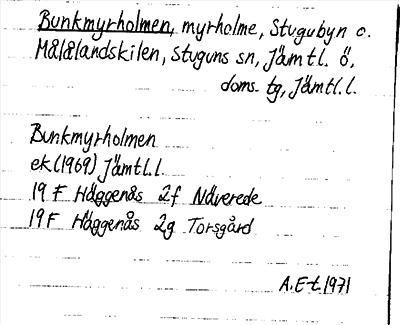 Bunkmyrholmen, myrholme, Stugubyn o.
Målålandskilen, Stuguns sn, Jämtl. ö,
doms. tg, Jämtl. l.
Bunkmyrholmen
ek. (1969) Jämtl. l.
19 F Häggenås 2f Näverede
19 F Häggenås 2g Torsgård
A. E-t. 1971